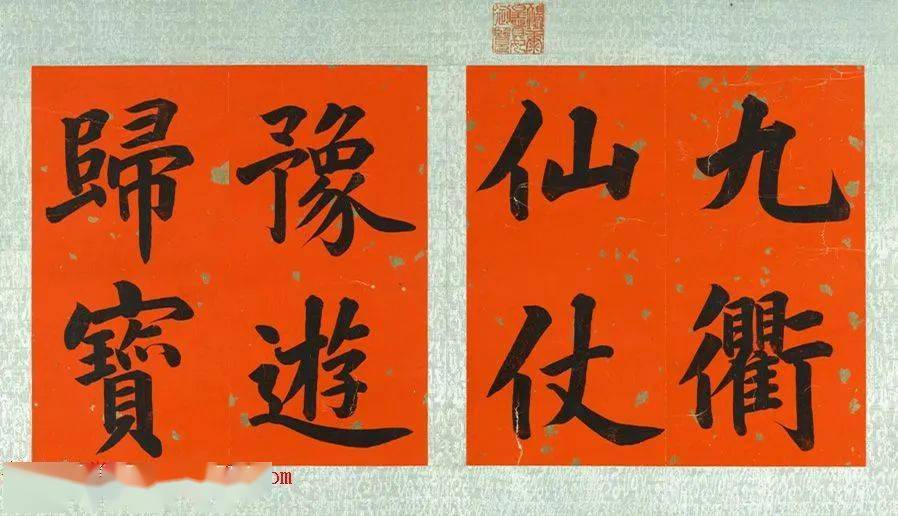 九衢
仙仗
豫遊
歸寶
om